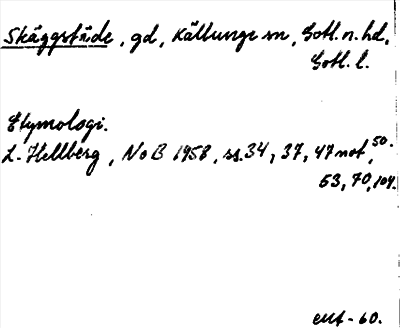 Skäggstäde, gd, Källunge sn, Gotl. n. hd,
Gotl. l.
Etymologi.
L. Hellberg, NoB 1958, ss. 34, 37, 47 not, 50.
53, 70, 104.
-60.